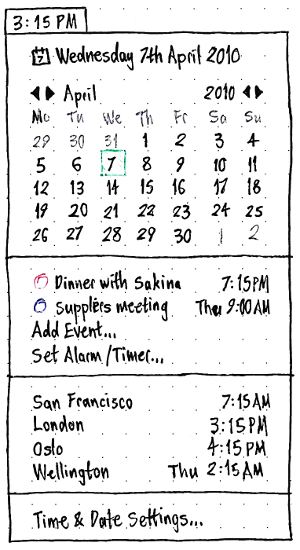 3:15 PM
7 Wednesday 7th April 2010
April 2010
Mo Tu We Th Fr Sa Su
29 30 31 1 2 3 4
5 6 7 8 9 10 11
12 13 14 15 16 17 18
19 20 21 22 23 24 25
26 27 28 29 30 1 2
Dinner with Sakina 7:15PM
Supplers meeting Thu 9:00AM
Add Event...
Set Alarm/Timer...
San Francisco 7:15AM
London 3:15PM
Oslo 4:15PM
Wellington Thu 2:15AM
Time & Date Settings...